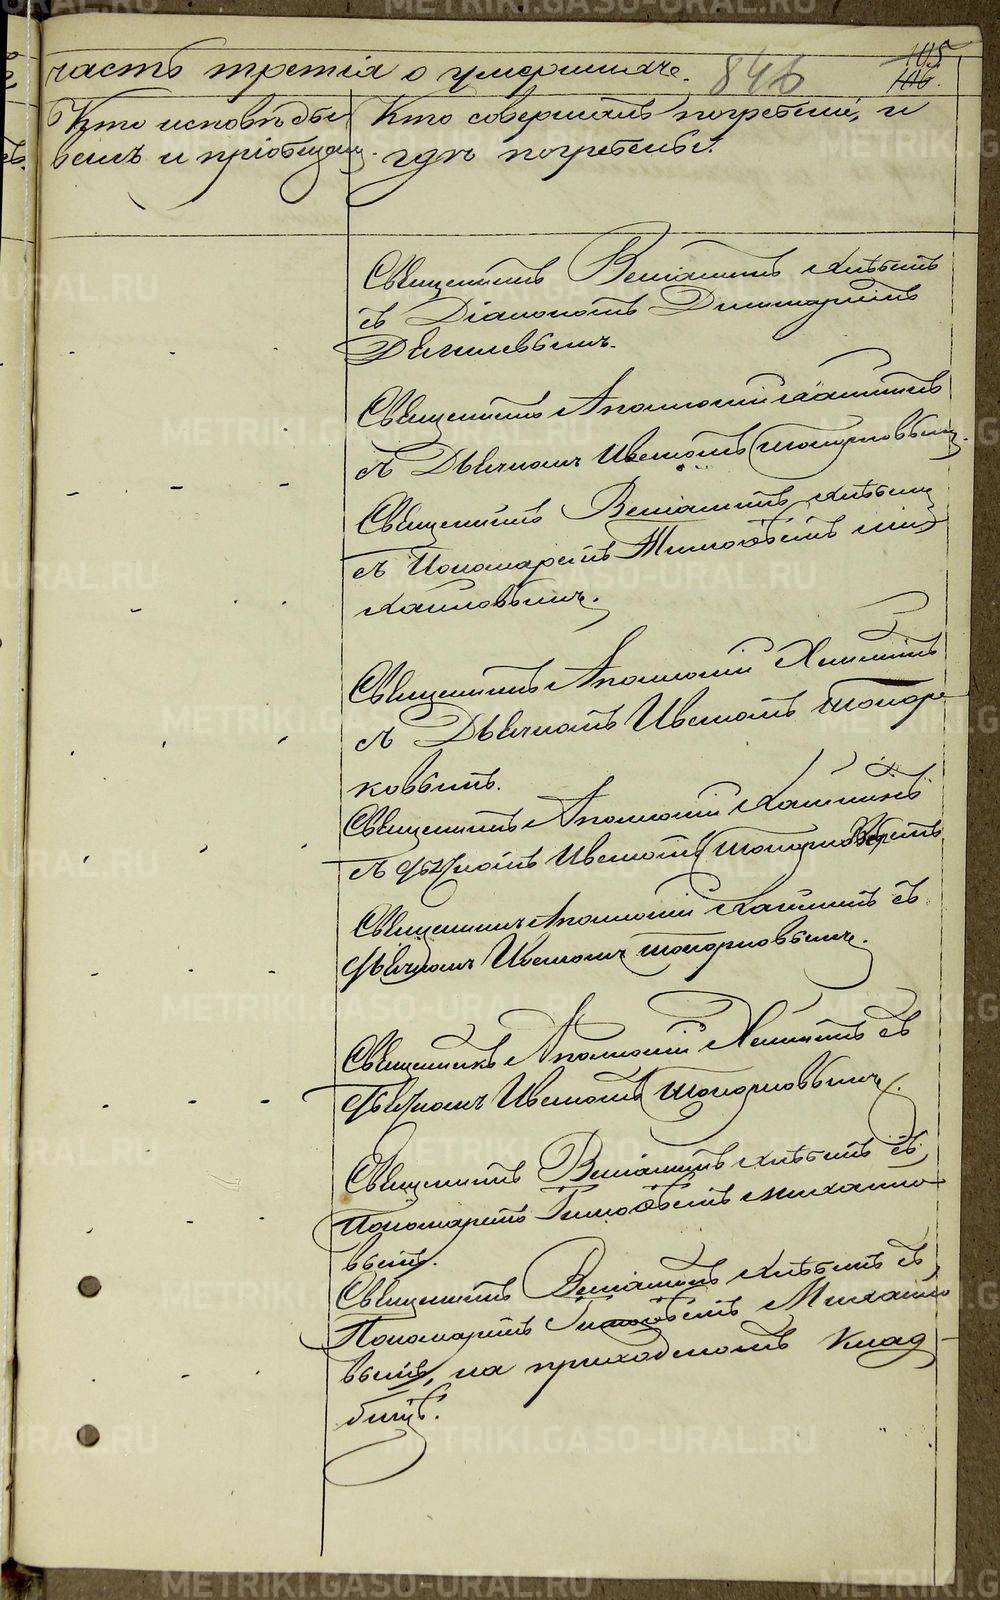 часть третія о умершихъ. 846 105
106.
Кто исповѣды
валъ и пріобщалъ.
Кто совершалъ погребеніе, и
гдѣ погребены.
Священникъ Веніаминъ
съ Діакономъ Димитріемъ
Священникъ Аполлоній
съ Дьячкомъ Иваномъ Топорковымъ
Священникъ Веніаминъ
съ Пономаремъ Тимоѳеемъ Ми
хайловымъ.
Священникъ Аполлоній
съ Дьячкомъ Иваномъ Топор
ковымъ.
Священникъ Аполлоній
съ Дьячкомъ Иваномъ Топорковымъ
Священникъ Аполлоній съ
Дьячкомъ Иваномъ Топорковымъ.
Священникъ Аполлоній съ
Дьячкомъ Иваномъ Топорковымъ.
Священникъ Веніаминъ съ
Пономаремъ Тимоѳеемъ Михайло
вымъ.
Священникъ Веніаминъ съ
Пономаремъ Тимоѳеемъ Михайло
вымъ, на приходскомъ клад
бищѣ.
METRIKI.GASO-URAL.RU